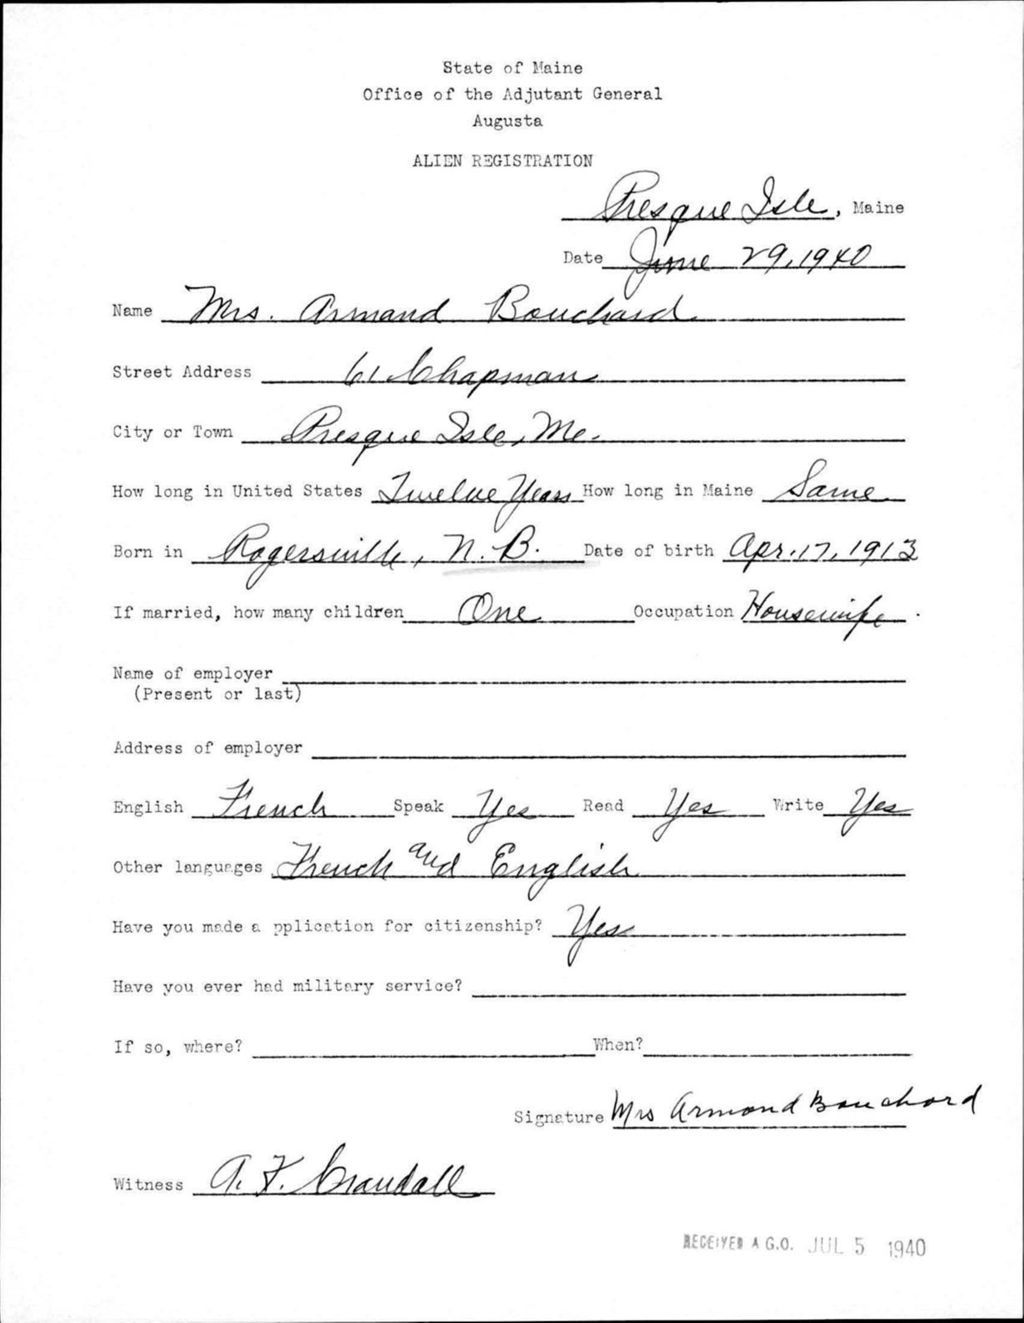 State of Maine
Office of the Adjutant General
Augusta
ALIEN REGISTRATION
Presque Isle, Maine
Date June 29, 1940
Name Mrs. Armand Bouchard
Street Address 61 Chapman
City or Town Presque Isle, Me.
How long in United States Twelve Years How long in Maine Same
Born in Rogersville, N.B. Date of birth Apr. 17, 1913
If married, how many children One Occupation Housewife
Name of employer
(Present or last)
Address of employer
English French Speak Yes Read Yes Write Yes
Other languages French and English
Have you made a pplication for citizenship? Yes
Have you ever had military service?
If so, where? When?
Signature Mrs Armond Bouchard
Witness A. F. Crandall
RECEIVED A G.O. JUL 5 1940